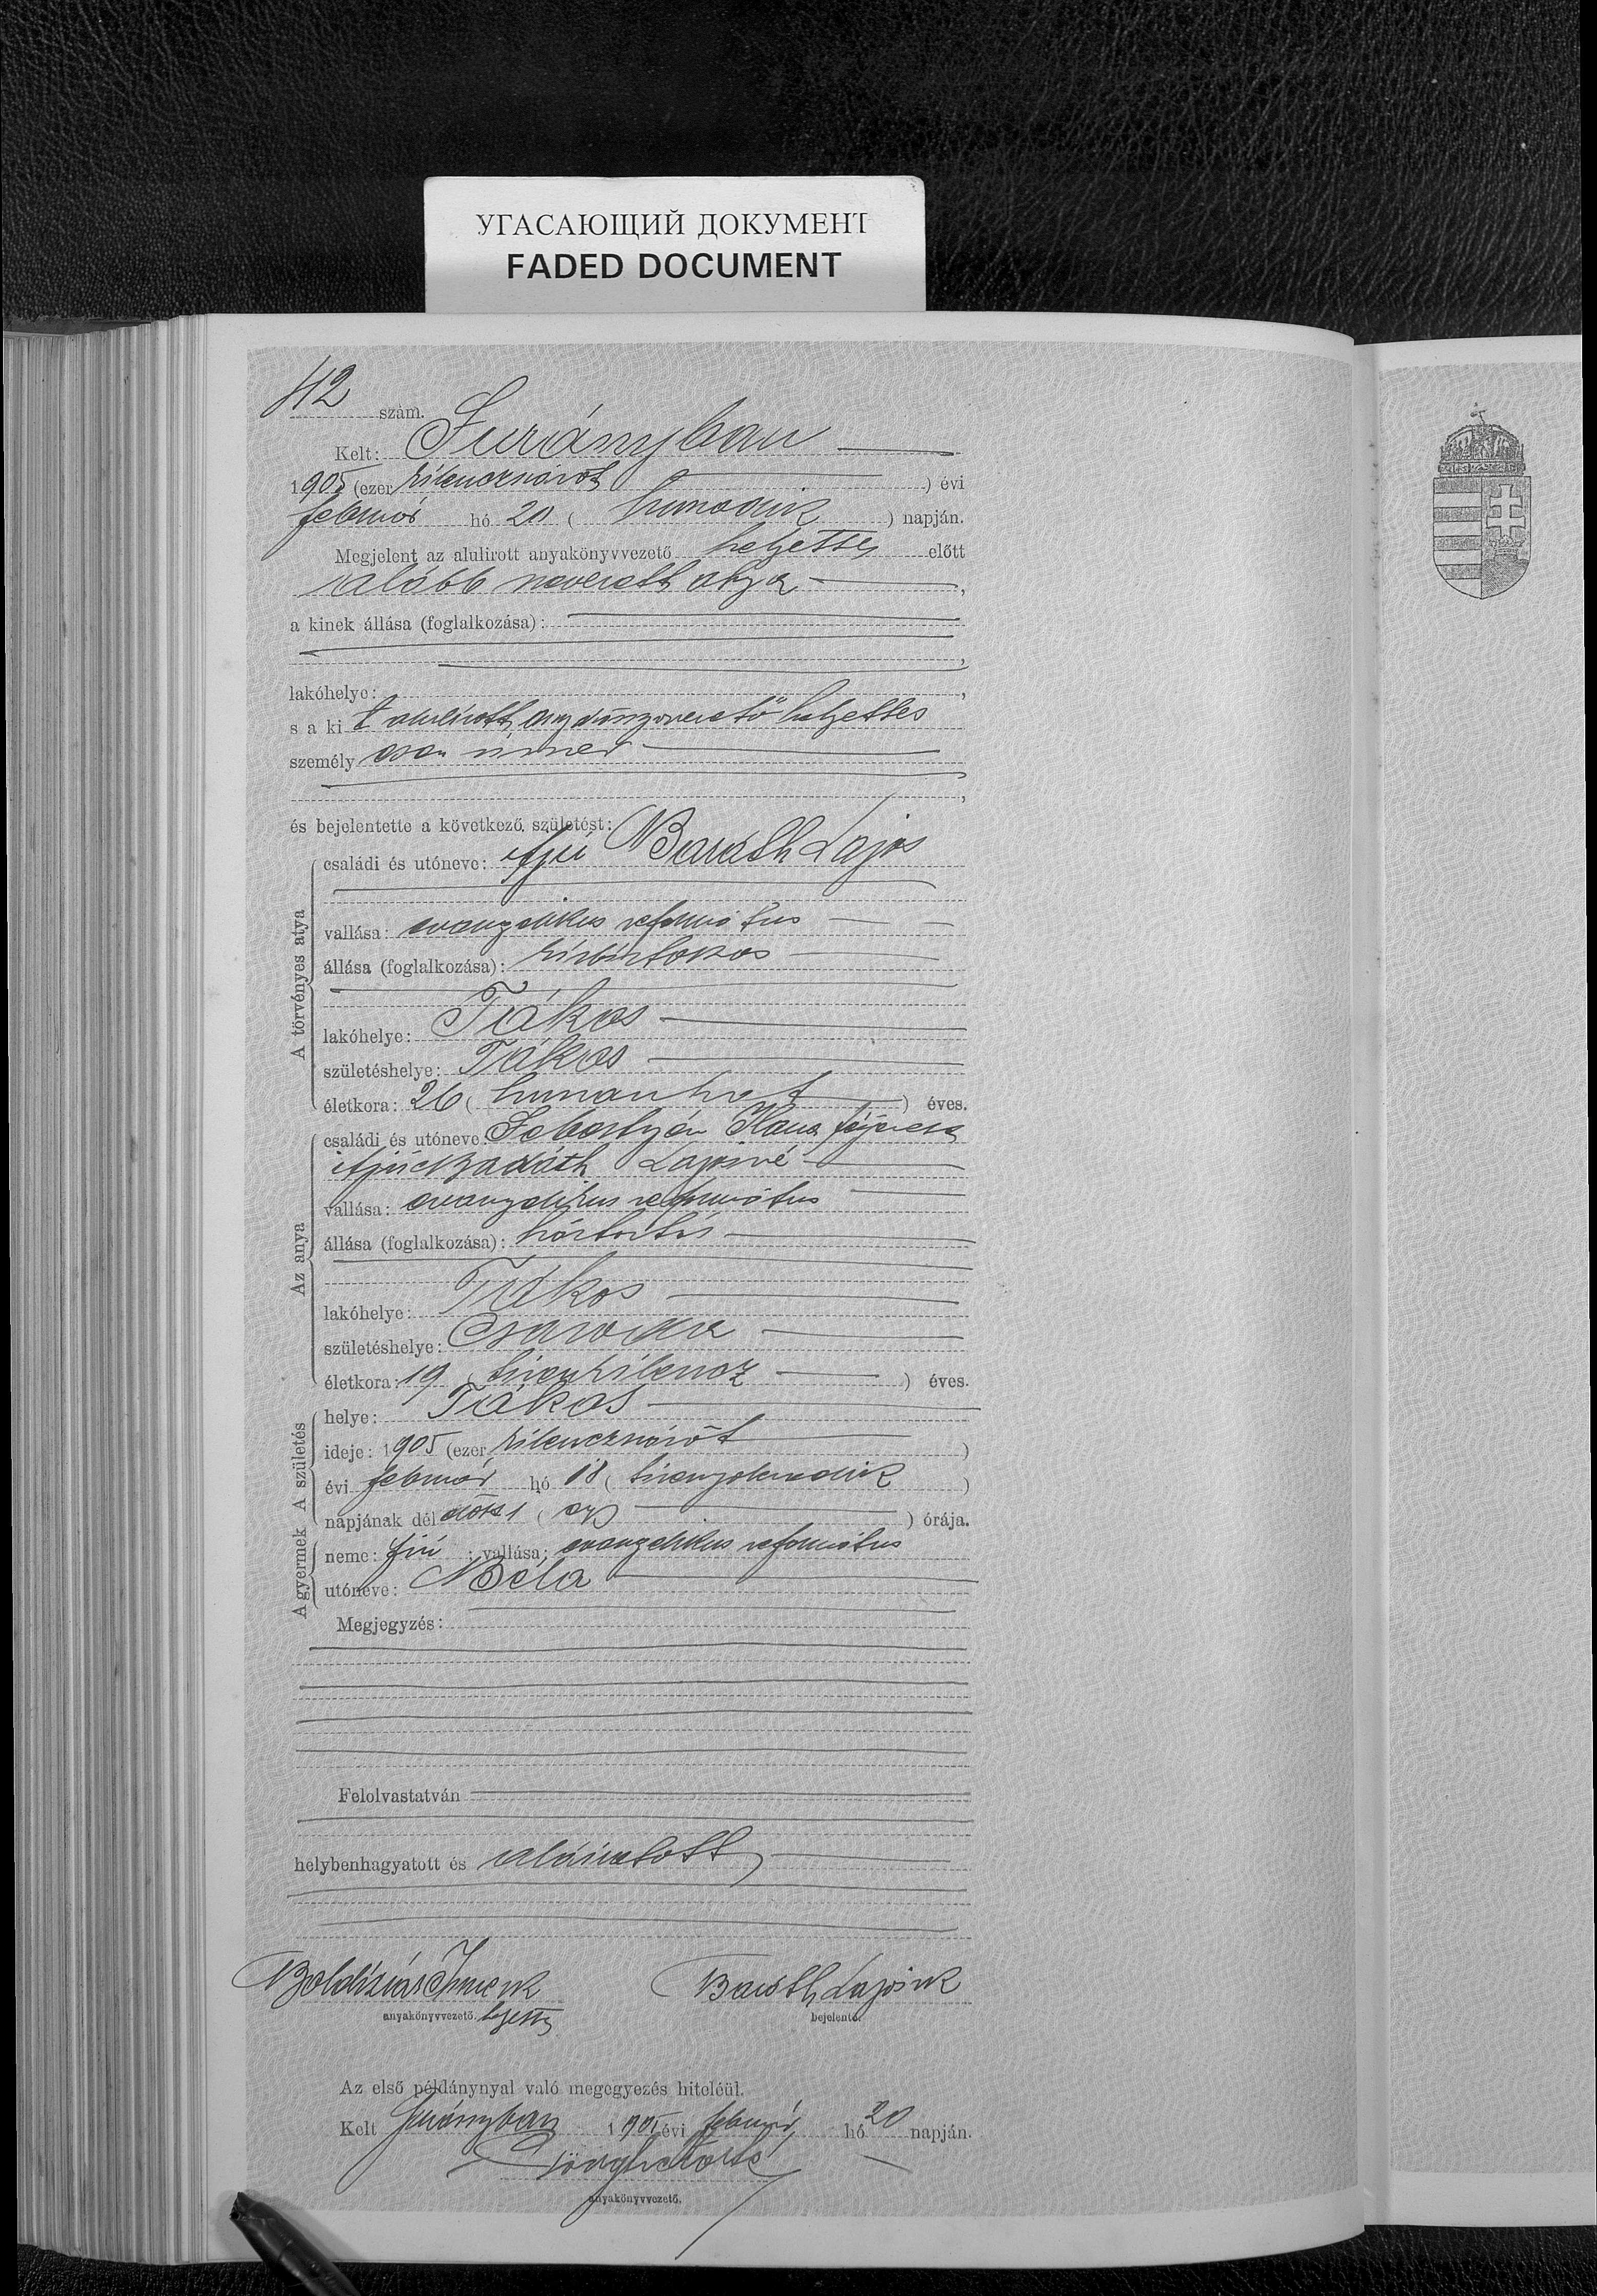 УГАСАЮЩИЙ ДОКУМЕНТ
FADED DOCUMENT
42 szám.
Kelt: Surányban
1905 (ezer kilencszázöt) évi
február hó 20 (huszadik) napján.
Megjelent az alulirott anyakönyvvezető helyettes előtt
alább nevezett atya,
a kinek állása (foglalkozása):
,
lakóhelye: ,
s a ki t alulirott anyakönyvvezető helyettes
személy esen ismer
,
és bejelentette a következő születést:
A törvényes atya
családi és utóneve: ifjú Baráth Lajos
vallása: evangelikus református
állása (foglalkozása): kisbirtokos
lakóhelye: Tákos
születéshelye: Tákos
életkora: 26 (huszonhat) éves.
Az anya
családi és utóneve: Sebestyén Ilona férjezett
ifjú Baráth Lajosné
vallása: evangelikus református
állása (foglalkozása): háztartás
lakóhelye: Tákos
születéshelye: Csaroda
életkora: 19 (tizenkilencz) éves.
A születés
helye: Tákos
ideje: 1905 (ezer kilencszázöt)
évi február hó 18 (tizennyolczadik)
napjának dél előtt 1 (egy) órája.
A gyermek
neme: fiú ; vallása: evangelikus református
utóneve: Béla
Megjegyzés:
Felolvastatván
helybenhagyatott és aláiratott
Boldizsár Imre sk Baráth Lajos sk
anyakönyvvezető. helyettes bejelentő.
Az első példánynyal való megegyezés hiteléül.
Kelt Surányban 1905 évi február hó 20 napján.
anyakönyvvezető.